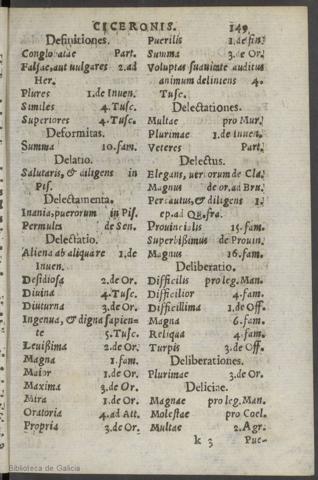 CICERONIS. 149
Definitiones.
Conglobatae Part.
Falsae, aut vulgares 2. ad
Her.
Plures 1. de Inuen.
Similes 4. Tusc.
Superiores 4. Tusc.
Deformitas.
Summa 10. fam.
Delatio.
Salutaris, & diligens in
Pis.
Delectamenta.
Inania, puerorum in Pis.
Permulta de Sen.
Delectatio.
Aliena ab aliquare 1. de
Inuen.
Desidiosa 2. de Or.
Diuina 4. Tusc.
Diuturna 3. de Or.
Ingenua, & digna sapien-
te 5. Tusc.
Leuißima 2. de Or.
Magna 1. fam.
Maior 1. de Or.
Maxima 3. de Or.
Mira 1. de Or.
Oratoria 4. ad Att.
Propria 3. de Or.
Puerilis 1. de fin.
Summa 3. de Or.
Voluptas suauitate auditus
animum deliniens 4.
Tusc.
Delectationes.
Multae pro Mur.
Plurimae 1. de Inuen.
Veteres Part.
Delectus.
Elegans, uerborum de Cla.
Magnus de or. ad Bru.
Percautus, & diligens 1.
ep. ad Qu. fra.
Prouincialis 15. fam.
Superbißimus de Prouin.
Magnus 16. fam.
Deliberatio.
Difficilis pro leg. Man.
Difficilior 4. fam.
Difficillima 1. de Off.
Magna 6. fam.
Reliqua 4. fam.
Turpis 3. de Off.
Deliberationes.
Plurimae 3. de Or.
Deliciae.
Magnae pro leg. Man.
Molestae pro Coel.
Multae 2. Agr.
k 3 Pue-
Biblioteca de Galicia